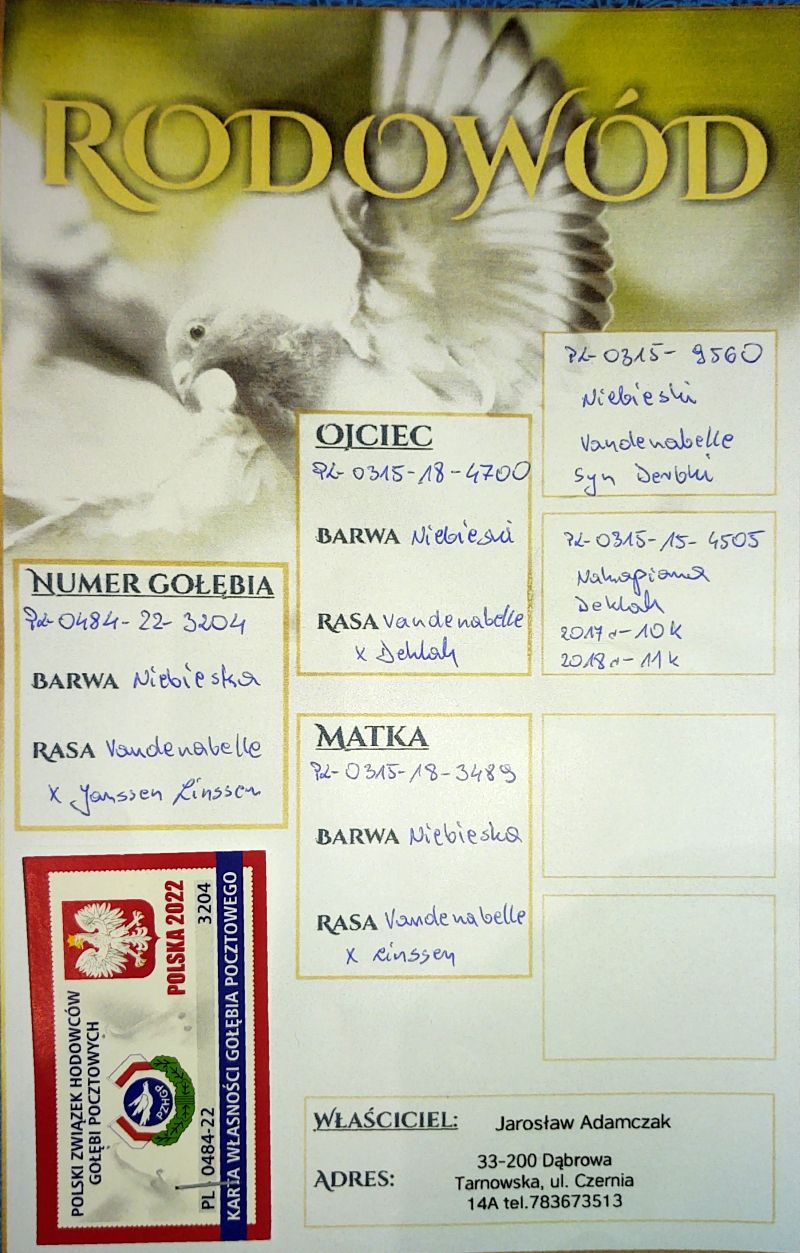 RODOWÓD
PL-0315-9560
Niebieski
Vandenabelle
Syn Derbki
OJCIEC
PL-0315-18-4700
BARWA Niebieski
RASA Vandenabelle
x Deklak
PL-0315-15-4505
Nakrapiana
Deklak
2017r-10k
2018r-11k
NUMER GOŁĘBIA
PL-0484-22-3204
BARWA Niebieska
RASA Vandenabelle
x Janssen Linssen
MATKA
PL-0315-18-3489
BARWA Niebieska
RASA Vandenabelle
x Linssen
POLSKI ZWIĄZEK HODOWCÓW
GOŁĘBI POCZTOWYCH
PZHGP
POLSKA 2022
PL - 0484-22 3204
KARTA WŁASNOŚCI GOŁĘBIA POCZTOWEGO
WŁAŚCICIEL: Jarosław Adamczak
ADRES: 33-200 Dąbrowa
Tarnowska, ul. Czernia
14A tel.783673513